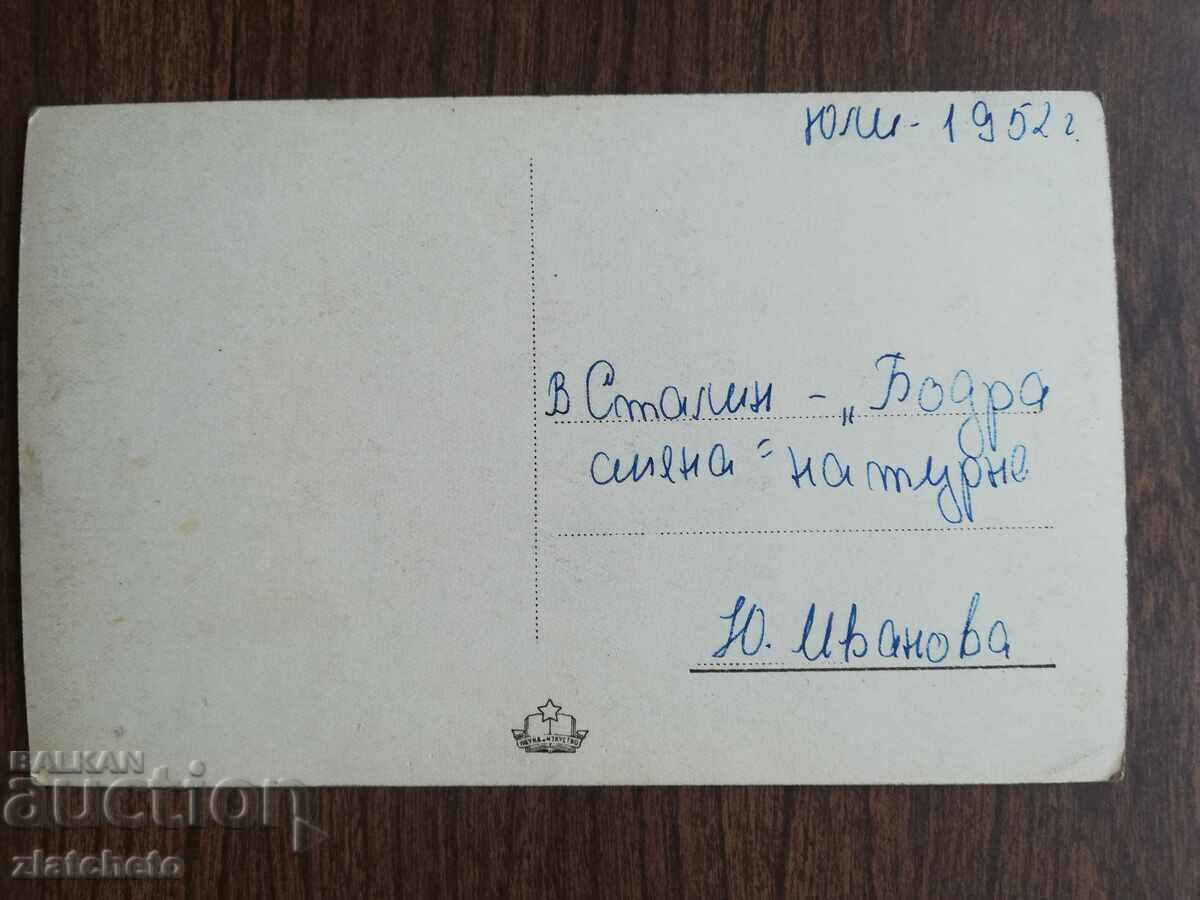 Юли - 1952 г.
В Сталин - „Бодра
смяна" на турне
Ю. Иванова
НАУКА И ИЗКУСТВО
BALKAN
auction
zlatcheto